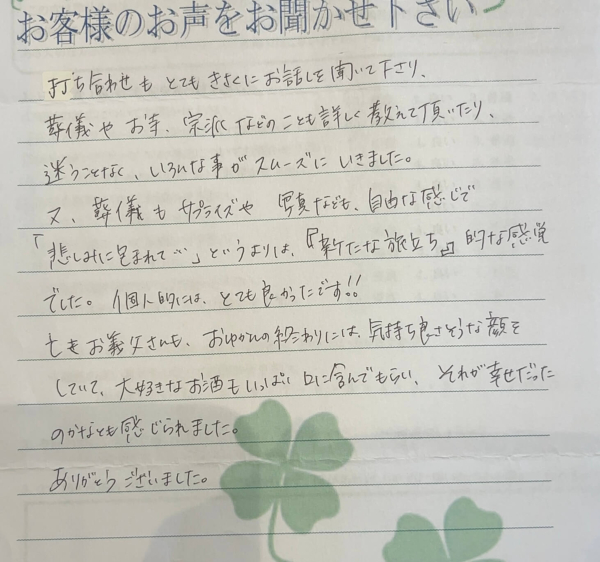 お客様のお声をお聞かせ下さい
打ち合わせも とても きさくに お話しを 聞いて下さり、
葬儀や お寺、宗派 などの ことも 詳しく 教えて頂いたり、
迷うことなく、いろんな事が スムーズに いきました。
又、葬儀も サプライズや 写真なども、自由な感じで
「悲しみに包まれて…」というよりは、『新たな旅立ち』的な感覚
でした。個人的には、とても良かったです!!
亡きお義父さんも、おゆかんの終わりには、気持ち良さそうな顔を
していて、大好きなお酒もいっぱい口に含んでもらい、それが幸せだった
のかなとも感じられました。
ありがとうございました。